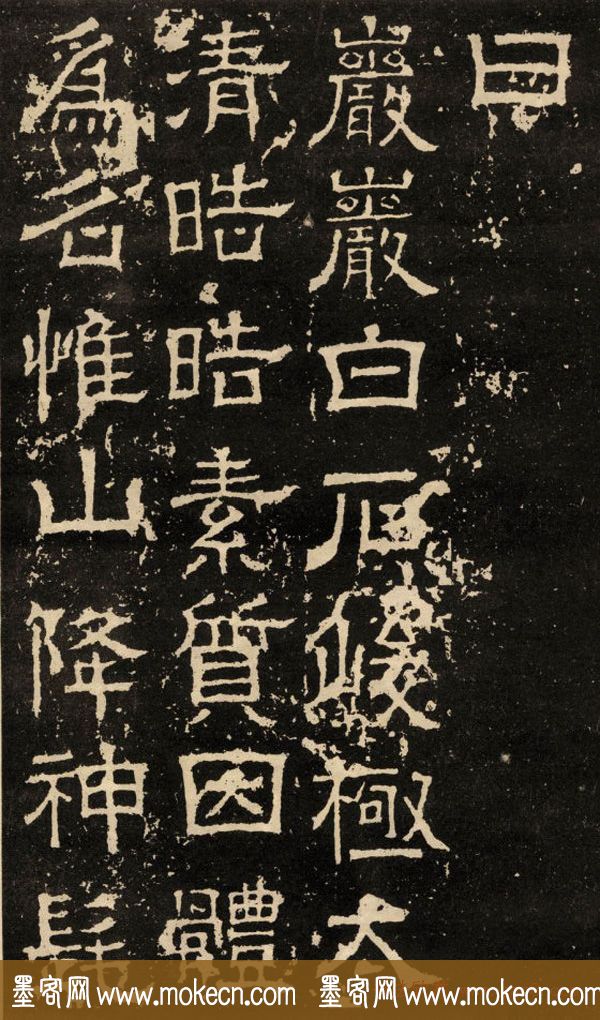 曰
巖巖白石峻極太
清晧晧素質因體
爲名惟山降神髦
墨客网 www.mokecn.com 墨客网 www.mokecn.com